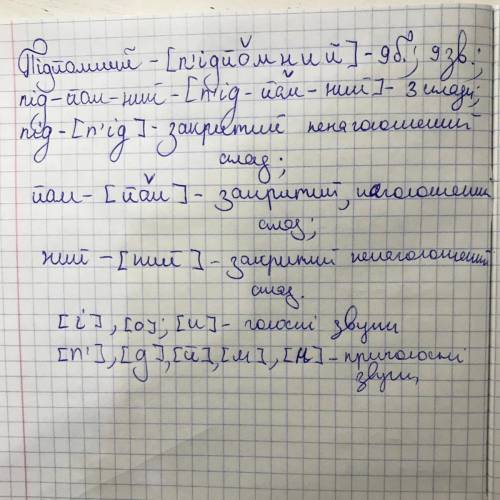 Підйомний – [п'ідйомний] – 9б.; 9зв.;
під-йом-ний – [п'ід-йом-ний] – 3 склади;
під – [п'ід] – закритий ненаголошений
склад;
йом – [йом] – закритий, наголошений
склад;
ний – [ний] – закритий ненаголошений
склад.
[і], [о]; [и] – голосні звуки
[п'], [д], [й], [м], [н] – приголосні
звуки,